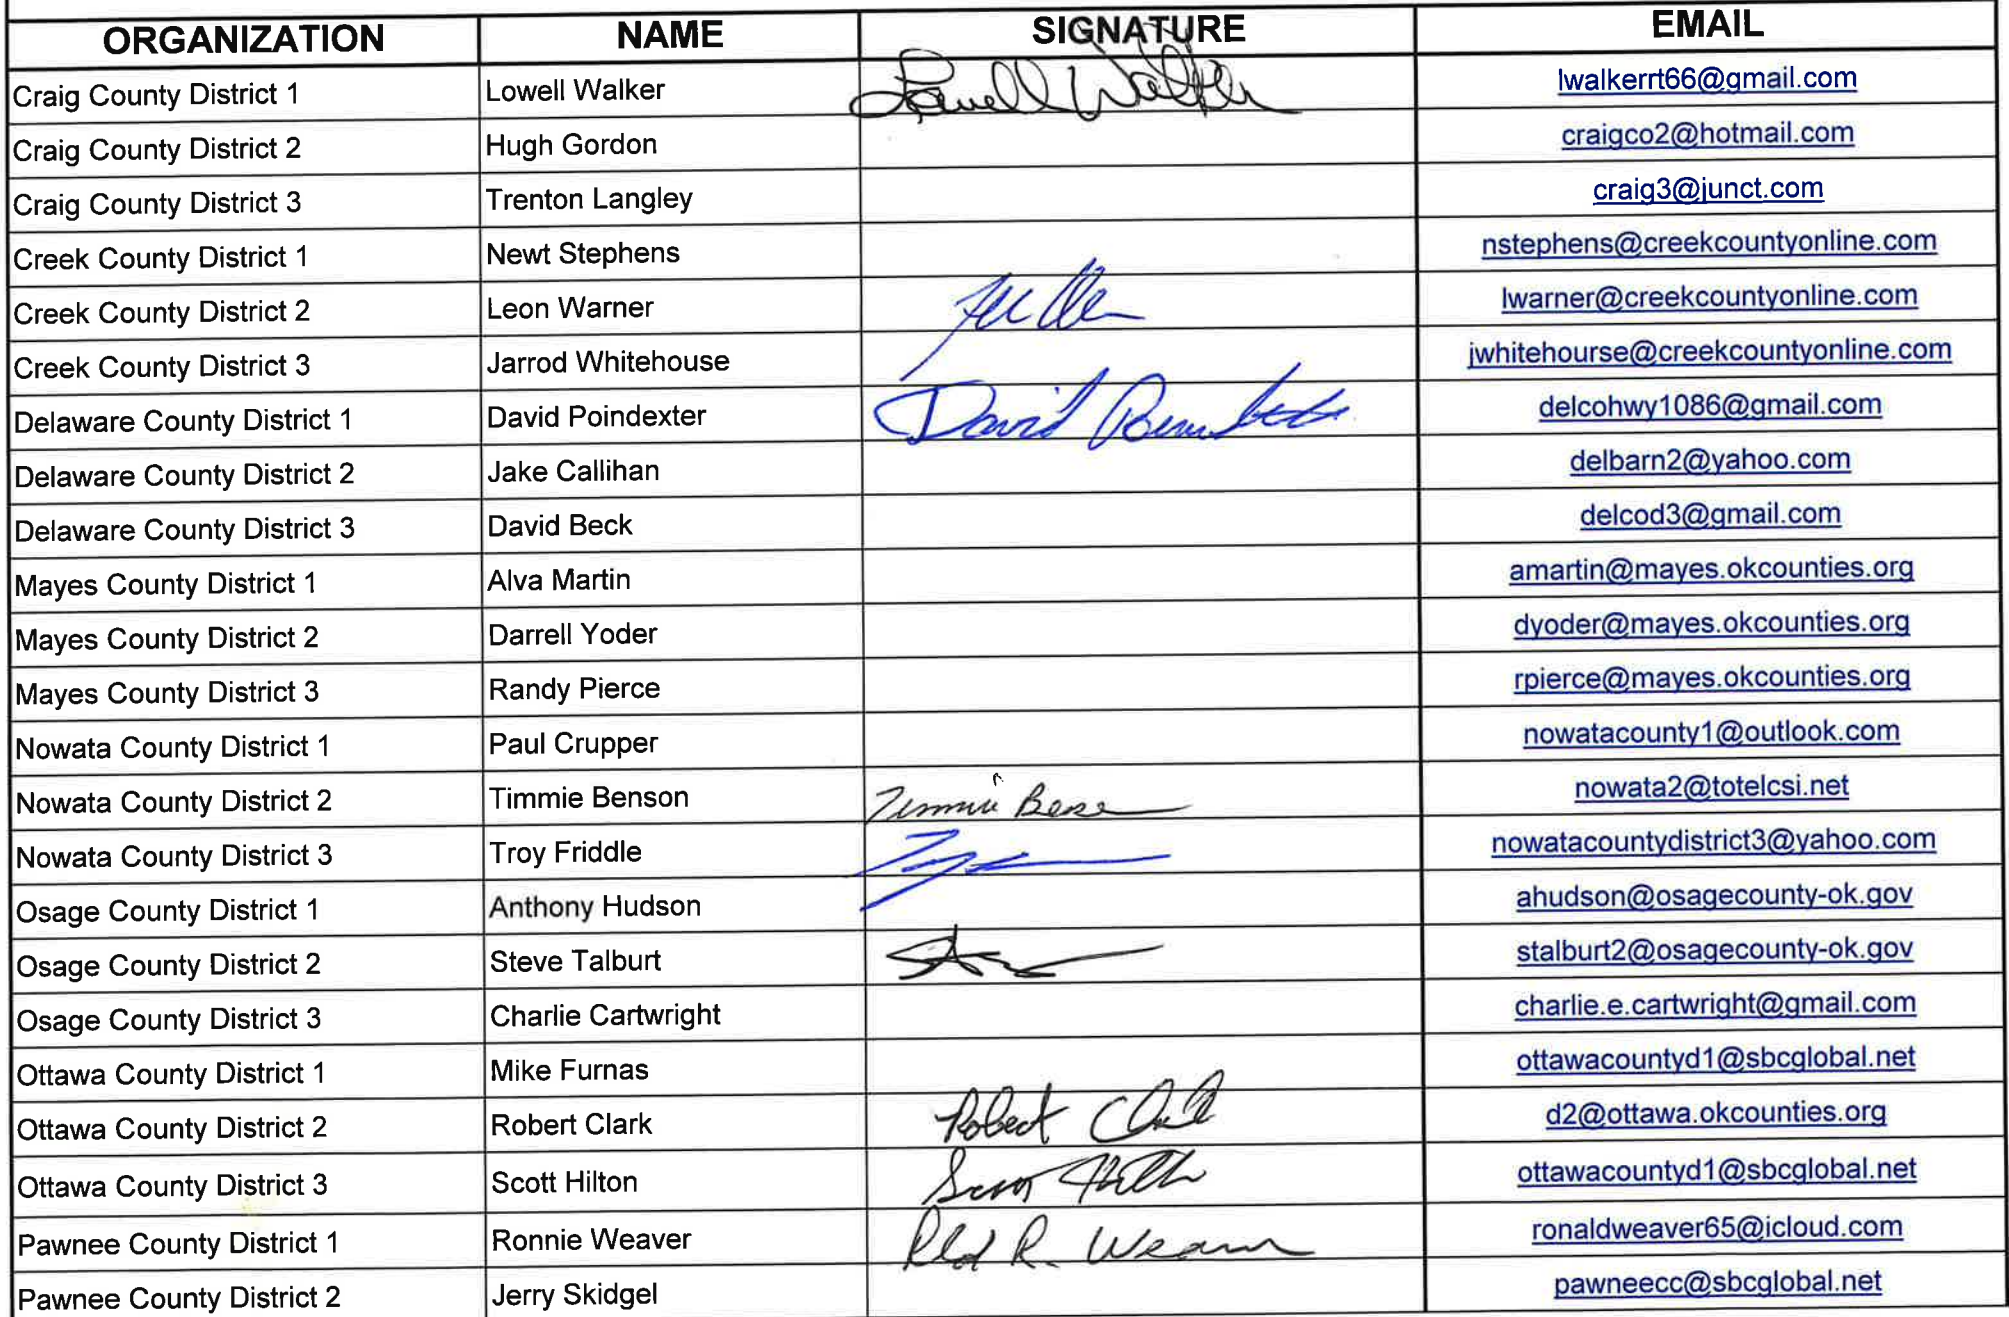 ORGANIZATION NAME SIGNATURE EMAIL
Craig County District 1 Lowell Walker Lowell Walker lwalkerrt66@gmail.com
Craig County District 2 Hugh Gordon craigco2@hotmail.com
Craig County District 3 Trenton Langley craig3@junct.com
Creek County District 1 Newt Stephens nstephens@creekcountyonline.com
Creek County District 2 Leon Warner lwarner@creekcountyonline.com
Creek County District 3 Jarrod Whitehouse jwhitehourse@creekcountyonline.com
Delaware County District 1 David Poindexter David delcohwy1086@gmail.com
Delaware County District 2 Jake Callihan delbarn2@yahoo.com
Delaware County District 3 David Beck delcod3@gmail.com
Mayes County District 1 Alva Martin amartin@mayes.okcounties.org
Mayes County District 2 Darrell Yoder dyoder@mayes.okcounties.org
Mayes County District 3 Randy Pierce rpierce@mayes.okcounties.org
Nowata County District 1 Paul Crupper nowatacounty1@outlook.com
Nowata County District 2 Timmie Benson Timmie nowata2@totelcsi.net
Nowata County District 3 Troy Friddle nowatacountydistrict3@yahoo.com
Osage County District 1 Anthony Hudson ahudson@osagecounty-ok.gov
Osage County District 2 Steve Talburt stalburt2@osagecounty-ok.gov
Osage County District 3 Charlie Cartwright charlie.e.cartwright@gmail.com
Ottawa County District 1 Mike Furnas ottawacountyd1@sbcglobal.net
Ottawa County District 2 Robert Clark Robert Clark d2@ottawa.okcounties.org
Ottawa County District 3 Scott Hilton Scott Hilton ottawacountyd1@sbcglobal.net
Pawnee County District 1 Ronnie Weaver R. Weaver ronaldweaver65@icloud.com
Pawnee County District 2 Jerry Skidgel pawneecc@sbcglobal.net